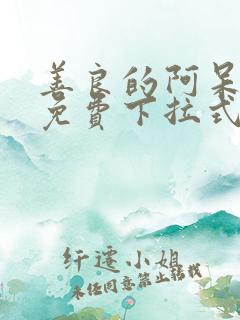 善良的阿呆
免費下拉式
纤遷小姐
未经同意禁止转载